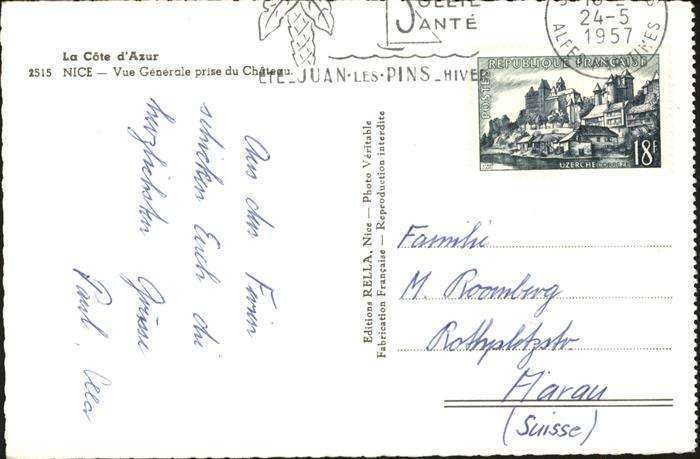 La Côte d'Azur
2515 NICE — Vue Générale prise du Château.
SOLEIL
SANTÉ
JUAN-LES-PINS
HIVER
24-5
1957
RÉPUBLIQUE FRANÇAISE
POSTES
UZERCHE
18F
Editions RELLA, Nice — Photo Véritable
Fabrication Française — Reproduction interdite
Aus den Ferien
schicken Euch die
herzlichsten Grüsse
Paul,
Familie
M. Roomberg
Rothpletzstr
Aarau
(Suisse)